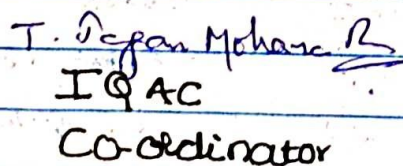 T. Jagan Mohana R
IQAC
Co-ordinator